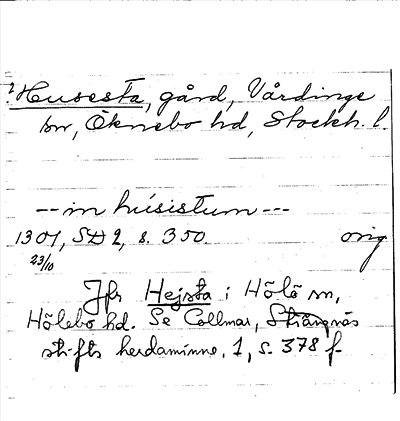 ? Husesta, gård, Vårdinge
sn, Öknebo hd, Stockh. l.
--- in húsistum ---
1301, SD 2, s. 350. orig
23/10
Jfr Hejsta i Hölö sn,
Hölebo hd. Se Collmar, Strängnäs
stifts herdaminne. 1, s. 378 f.